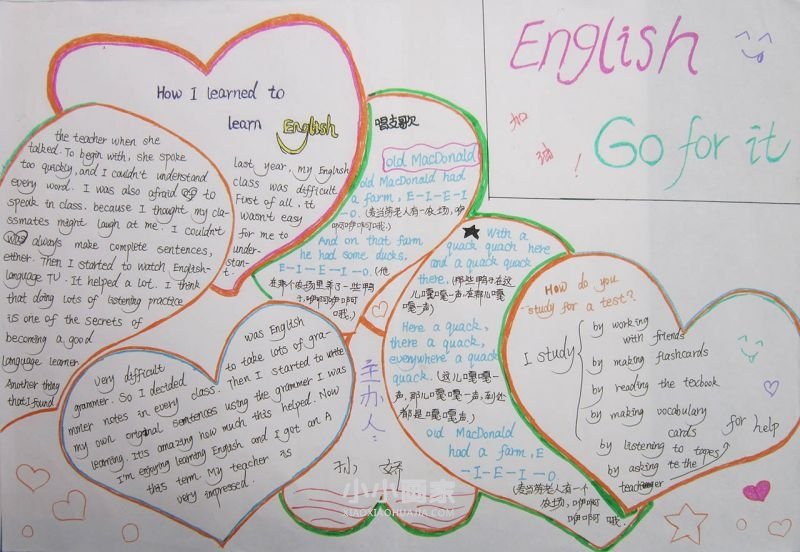 English
加
油!
Go for it
How I learned to
learn English
last year, my English
class was difficult
First of all, it
wasn't easy
for me to
under-
stan-
t.
the teacher when she
talked. To begin with, she spoke
too quickly, and I couldn't understand
every word. I was also afraid to
speak in class. because I thought my cla-
ssmates might laugh at me. I couldn't
was always make complete sentences,
either. Then I started to watch English-
language TV. It helped a lot. I think
that doing lots of listening practice
is one of the secrets of
becoming a good
language learner
Another thing
that I found
was English
very difficult to take lots of gra-
grammer. So I decided
mmer notes in every class. Then I started to write
my own original sentences using the grammer I was
learning. It's amazing how much this helped. Now
I'm enjoying learning English and I got an A
this term. My teacher is
very impressed.
唱支歌
old MacDonald
old MacDonald had
a farm, E-I-E-I
-O. (麦当劳老人有一农场, 咿
呀咿呀哦.)
And on that farm
he had some ducks.
E-I-E-I-O. (他
在那个农场里养了一些鸭
子, 咿呀咿呀
哦.)
With a
quack quack here
and a quack quack
there. (那些鸭子在这
儿嘎嘎一声, 在那儿嘎
嘎一声)
Here a quack,
there a quack,
everywhere a quack
quack. (这儿嘎嘎一
声, 那儿嘎嘎一声, 到处
都是嘎嘎声.)
old MacDonald
had a farm, E
-I-E-I-O.
(麦当劳老人有一个
农场, 咿呀
咿呀哦.)
How do you
study for a test?
I study
by working
with friends
by making flashcards
by reading the texbook
by making vocabulary
cards
by listening to tapes
by asking te the
teacher
for help
主办人:
孙 娇
小小画家
XIAOXIAOHUAJIA.COM